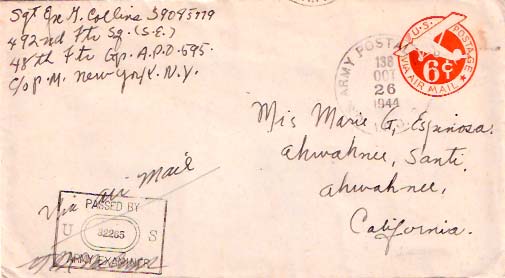 Sgt Gn G. Collins 39095779
492nd Ftr Sq. (S.E.)
48th Ftr Gp. A.P.O. 595.
C/o P.M. New York. N.Y.
ARMY POSTAL
138
OCT
26
1944
U.S. POSTAGE
VIA AIR MAIL
6¢
Mis Marie G, Espinosa.
Ahwahnee, Santi.
Ahwahnee,
California.
Via Air Mail
PASSED BY
U 32265 S
ARMY EXAMINER